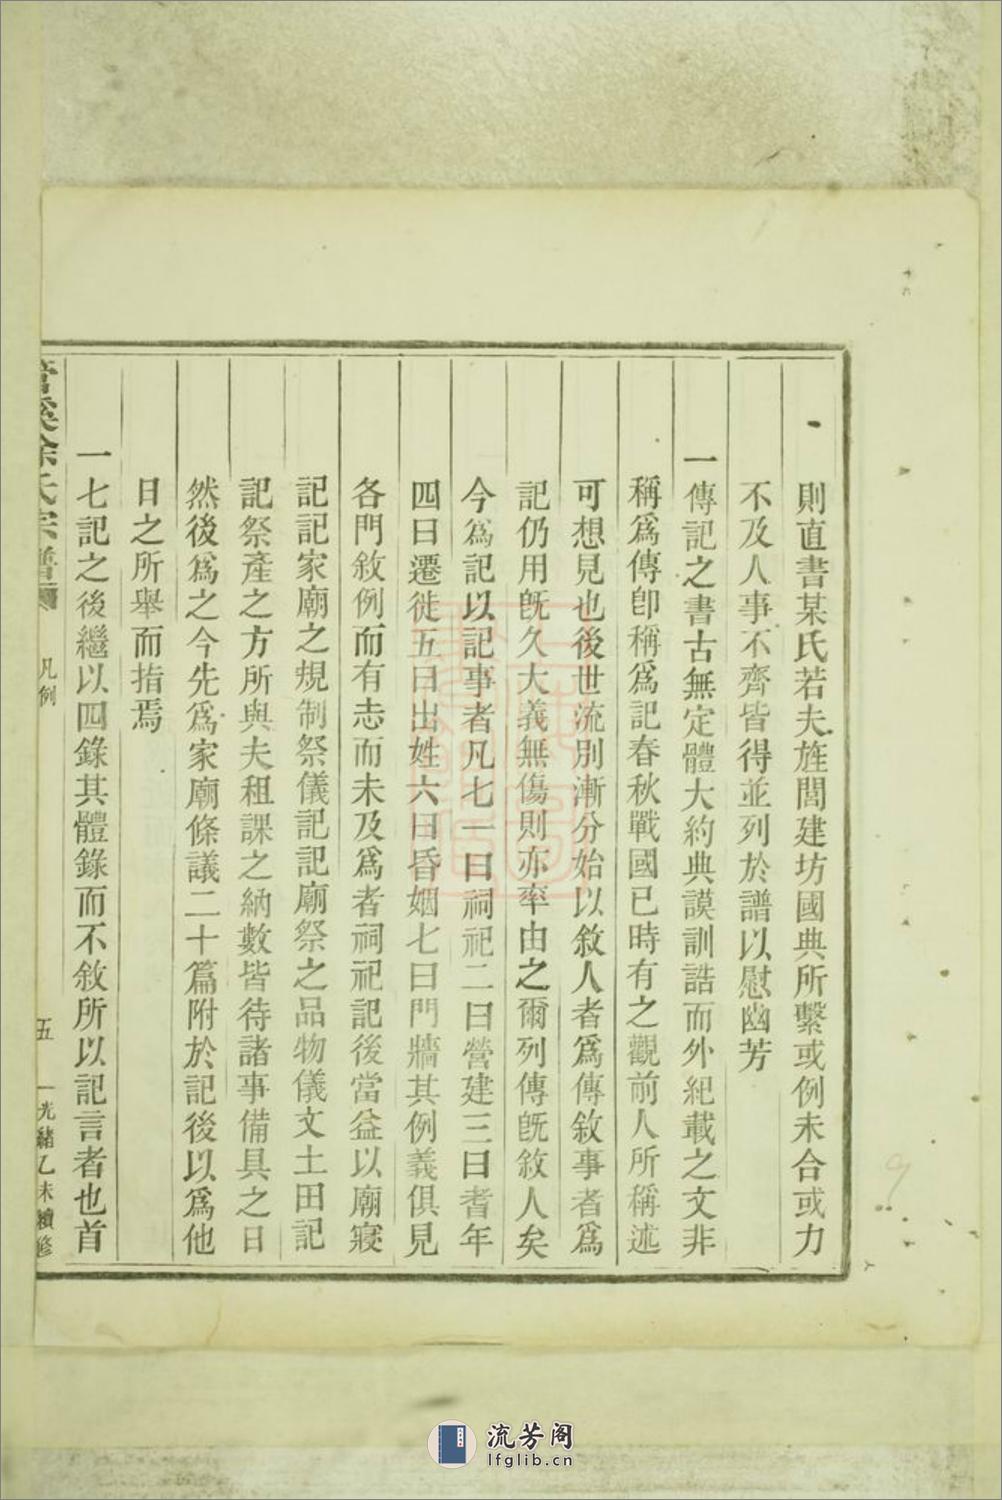 則直書某氏若夫旌閭建坊國典所繫或例未合或力
不及人事不齊皆得並列於譜以慰幽芳
一傳記之書古無定體大約典謨訓誥而外紀載之文非
稱爲傳卽稱爲記春秋戰國已時有之觀前人所稱述
可想見也後世流別漸分始以敘人者爲傳敘事者爲
記仍用旣久大義無傷則亦率由之爾列傳旣敘人矣
今爲記以記事者凡七一曰祠祀二曰營建三曰耆年
四曰遷徙五曰出姓六曰昏姻七曰門牆其例義俱見
各門敘例而有志而未及爲者祠祀記後當益以廟寢
記記家廟之規制祭儀記記廟祭之品物儀文土田記
記祭產之方所與夫租課之納數皆待諸事備具之日
然後爲之今先爲家廟條議二十篇附於記後以爲他
日之所舉而措焉
一七記之後繼以四錄其體錄而不敘所以記言者也首
徐氏宗譜
凡例
五
光緒乙未續修
流芳阁
lfglib.cn